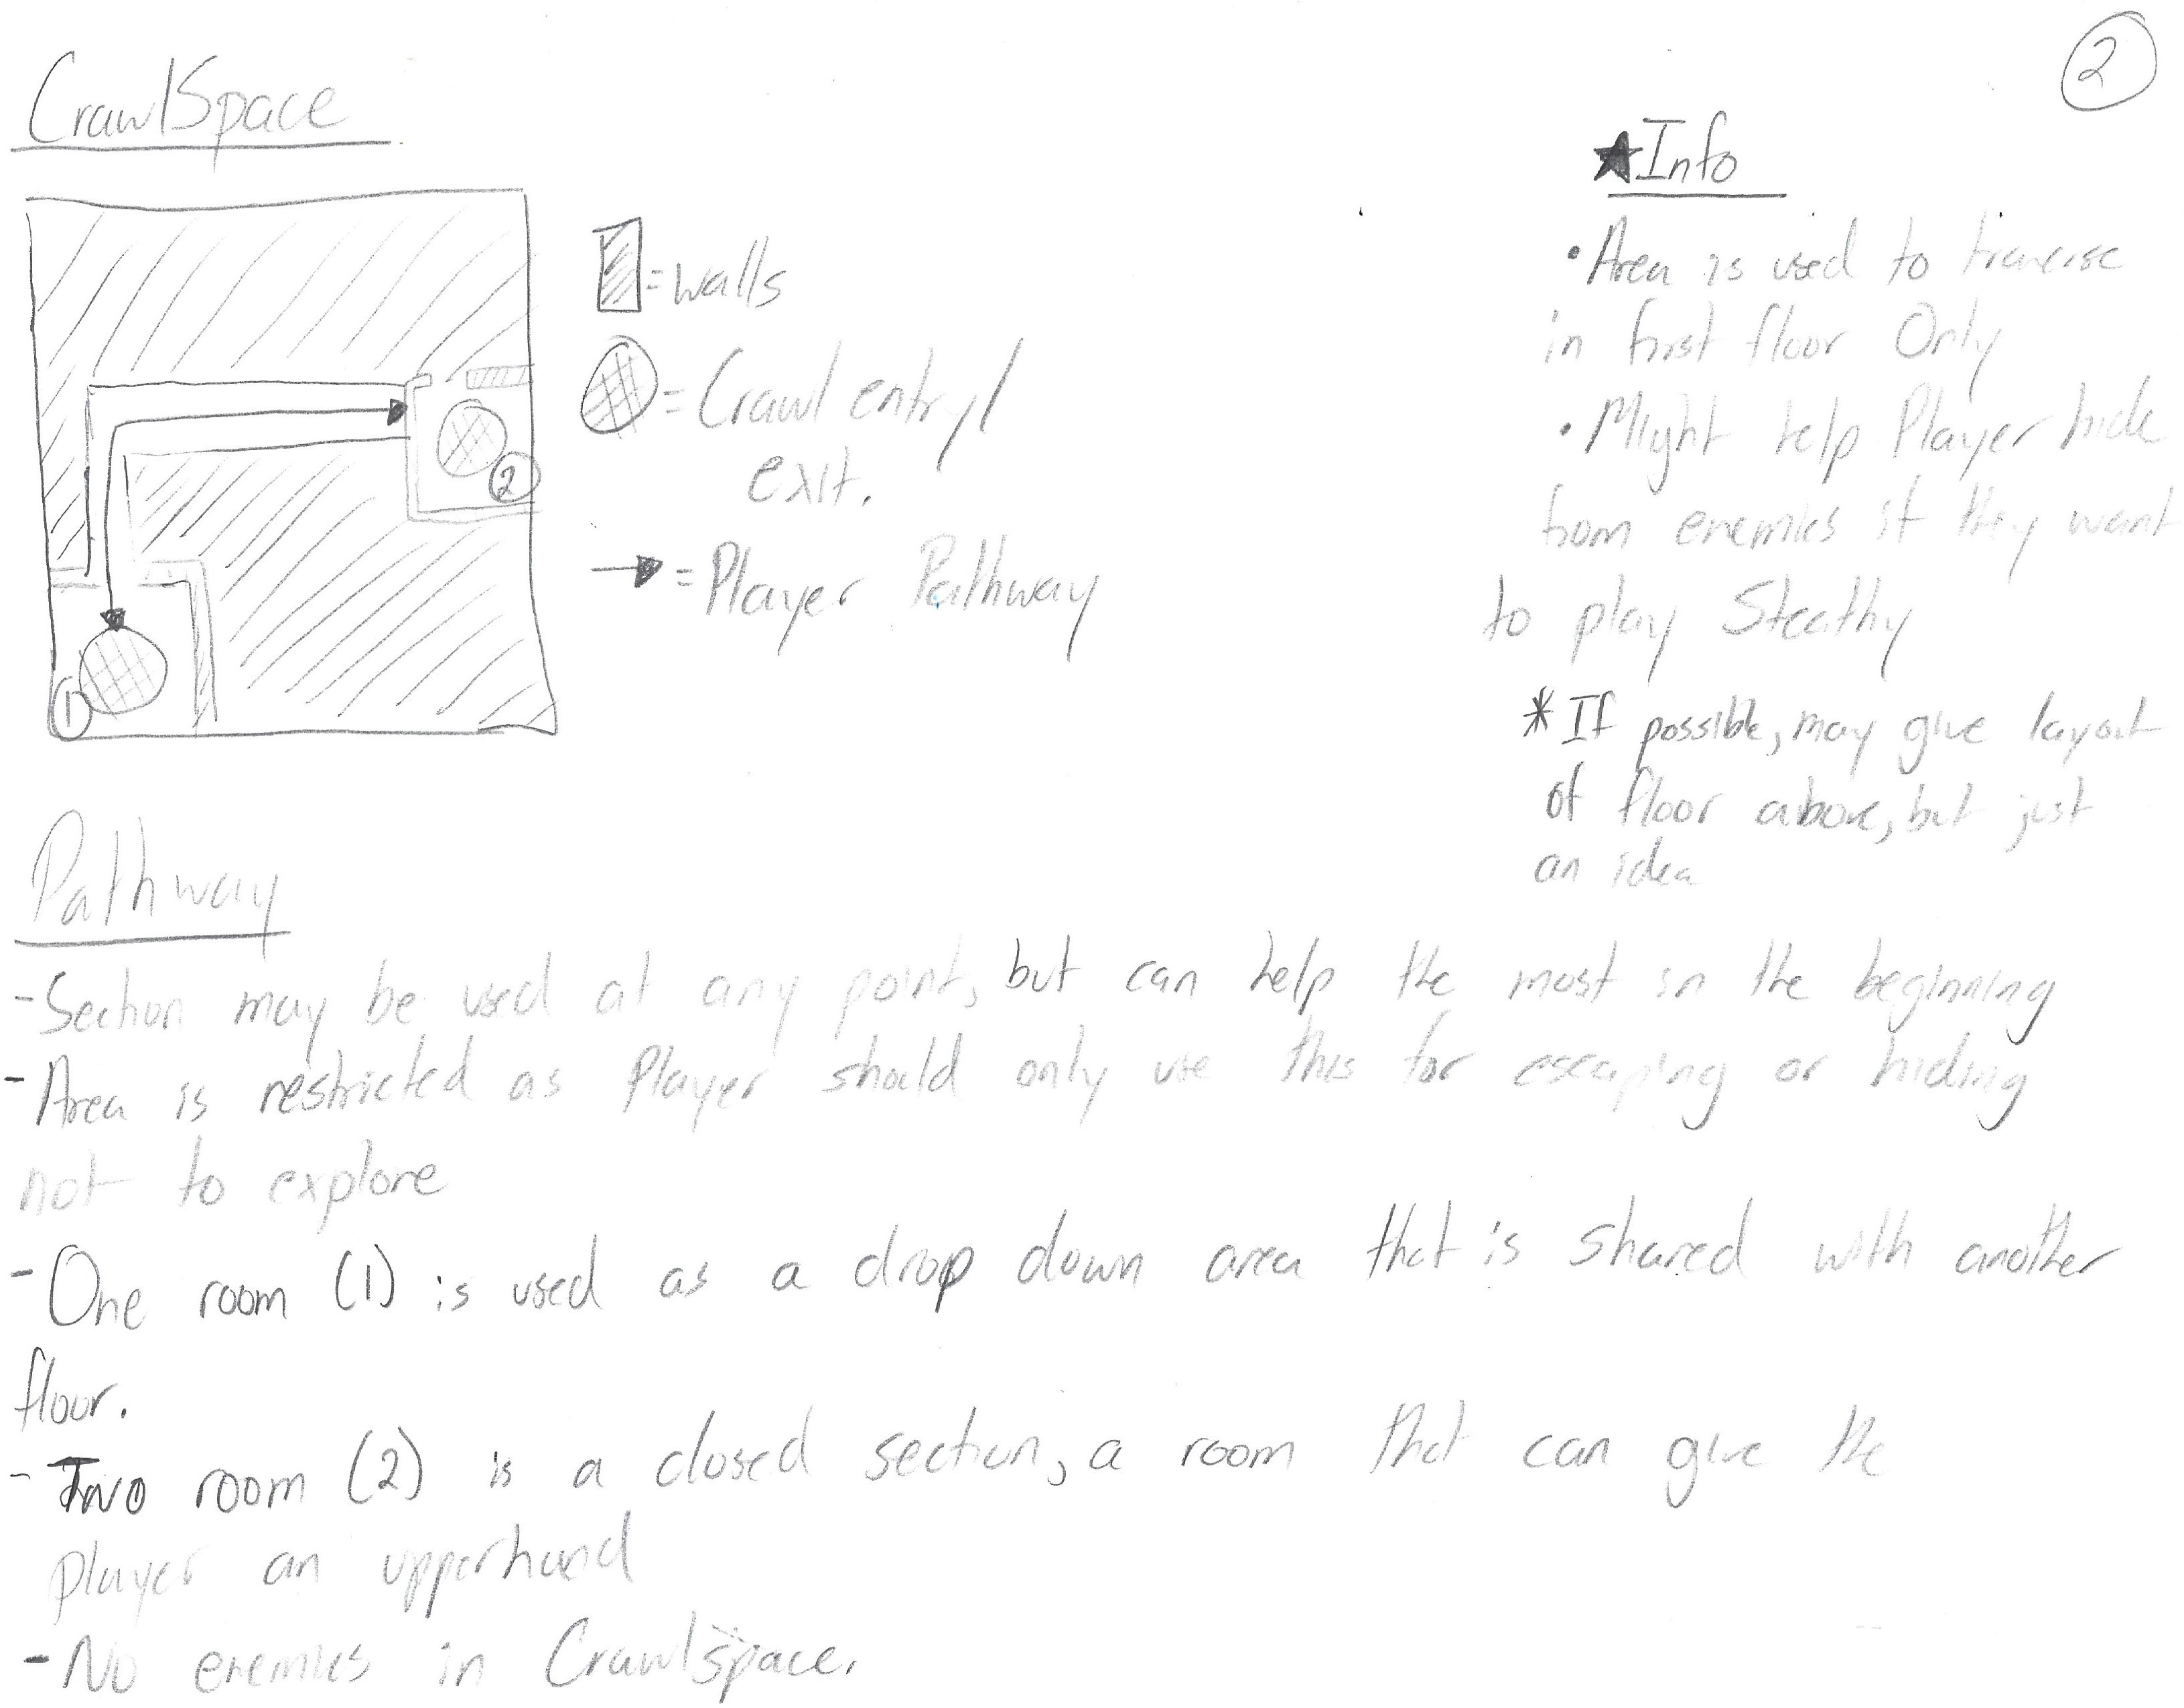 2
CrawlSpace
= walls
= Crawl entry/
exit.
= Player Pathway
2
1
★Info
• Area is used to traverse
in first floor Only
• Might help Player hide
from enemies if they want
to play Steathy
* If possible, may give layout
of floor above, but just
an idea
Pathway
- Section may be used at any point, but can help the most in the beginning
- Area is restricted as Player should only use this for escaping or hiding
not to explore
- One room (1) is used as a drop down area that is shared with another
floor.
- Two room (2) is a closed section, a room that can give the
player an upperhand
- No enemies in Crawlspace.